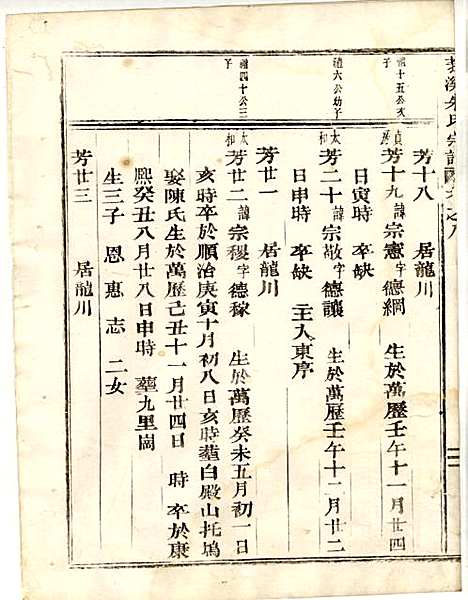 朱氏宗譜
芳十八 居龍川
禮十五公次子
芳十九 諱宗憲字德綱 生於萬歷壬午十一月廿四
日寅時 卒缺
禮六公幼子
太和 芳二十 諱宗敬字德讓 生於萬歷壬午十二月廿二
日申時 卒缺 主入東序
芳廿一 居龍川
四十公三子
太和 芳廿二 諱宗稷字德稼 生於萬歷癸未五月初一日
亥時卒於順治庚寅十月初八日亥時葬白殿山托塢
娶陳氏生於萬歷己丑十一月廿四日 時 卒於康
熙癸丑八月廿八日申時 葬九里崗
生三子 恩 惠 志 二女
芳廿三 居龍川